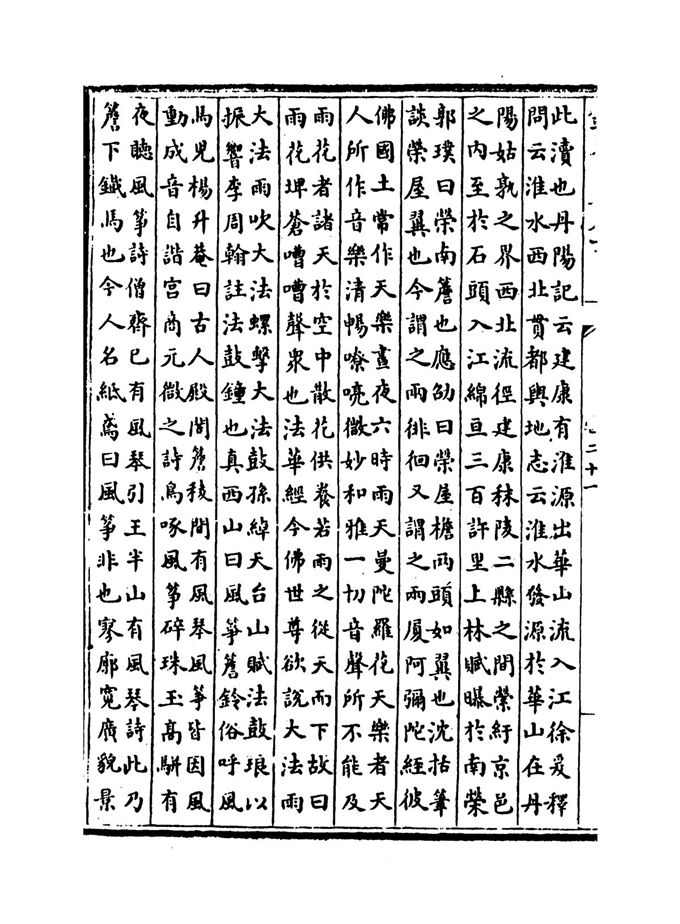 此瀆也丹陽記云建康有淮源出華山流入江徐爰釋
問云淮水西北貫都輿地志云淮水發源於華山在丹
陽姑孰之界西北流徑建康秣陵二縣之間縈紆京邑
之内至於石頭入江綿亘三百許里上林賦曝於南榮
郭璞曰榮南簷也應劭曰榮屋檐兩頭如翼也沈括筆
談榮屋翼也今謂之兩徘徊又謂之兩厦阿彌陀經彼
佛國土常作天樂晝夜六時雨天曼陀羅花天樂者天
人所作音樂清暢嘹喨微妙和雅一切音聲所不能及
雨花者諸天於空中散花供養若雨之從天而下故曰
雨花埤蒼嘈嘈聲衆也法華經今佛世尊欲說大法雨
大法雨吹大法螺擊大法鼓孫綽天台山賦法鼓琅以
振響李周翰註法鼓鐘也真西山曰風箏簷鈴俗呼風
馬兒楊升菴曰古人殿閣簷稜間有風琴風箏皆因風
動成音自諧宫商元微之詩鳥啄風箏碎珠玉高駢有
夜聽風箏詩僧齊已有風琴引王半山有風琴詩此乃
簷下鐵馬也今人名紙鳶曰風箏非也寥廓寛廣貌景
二十一